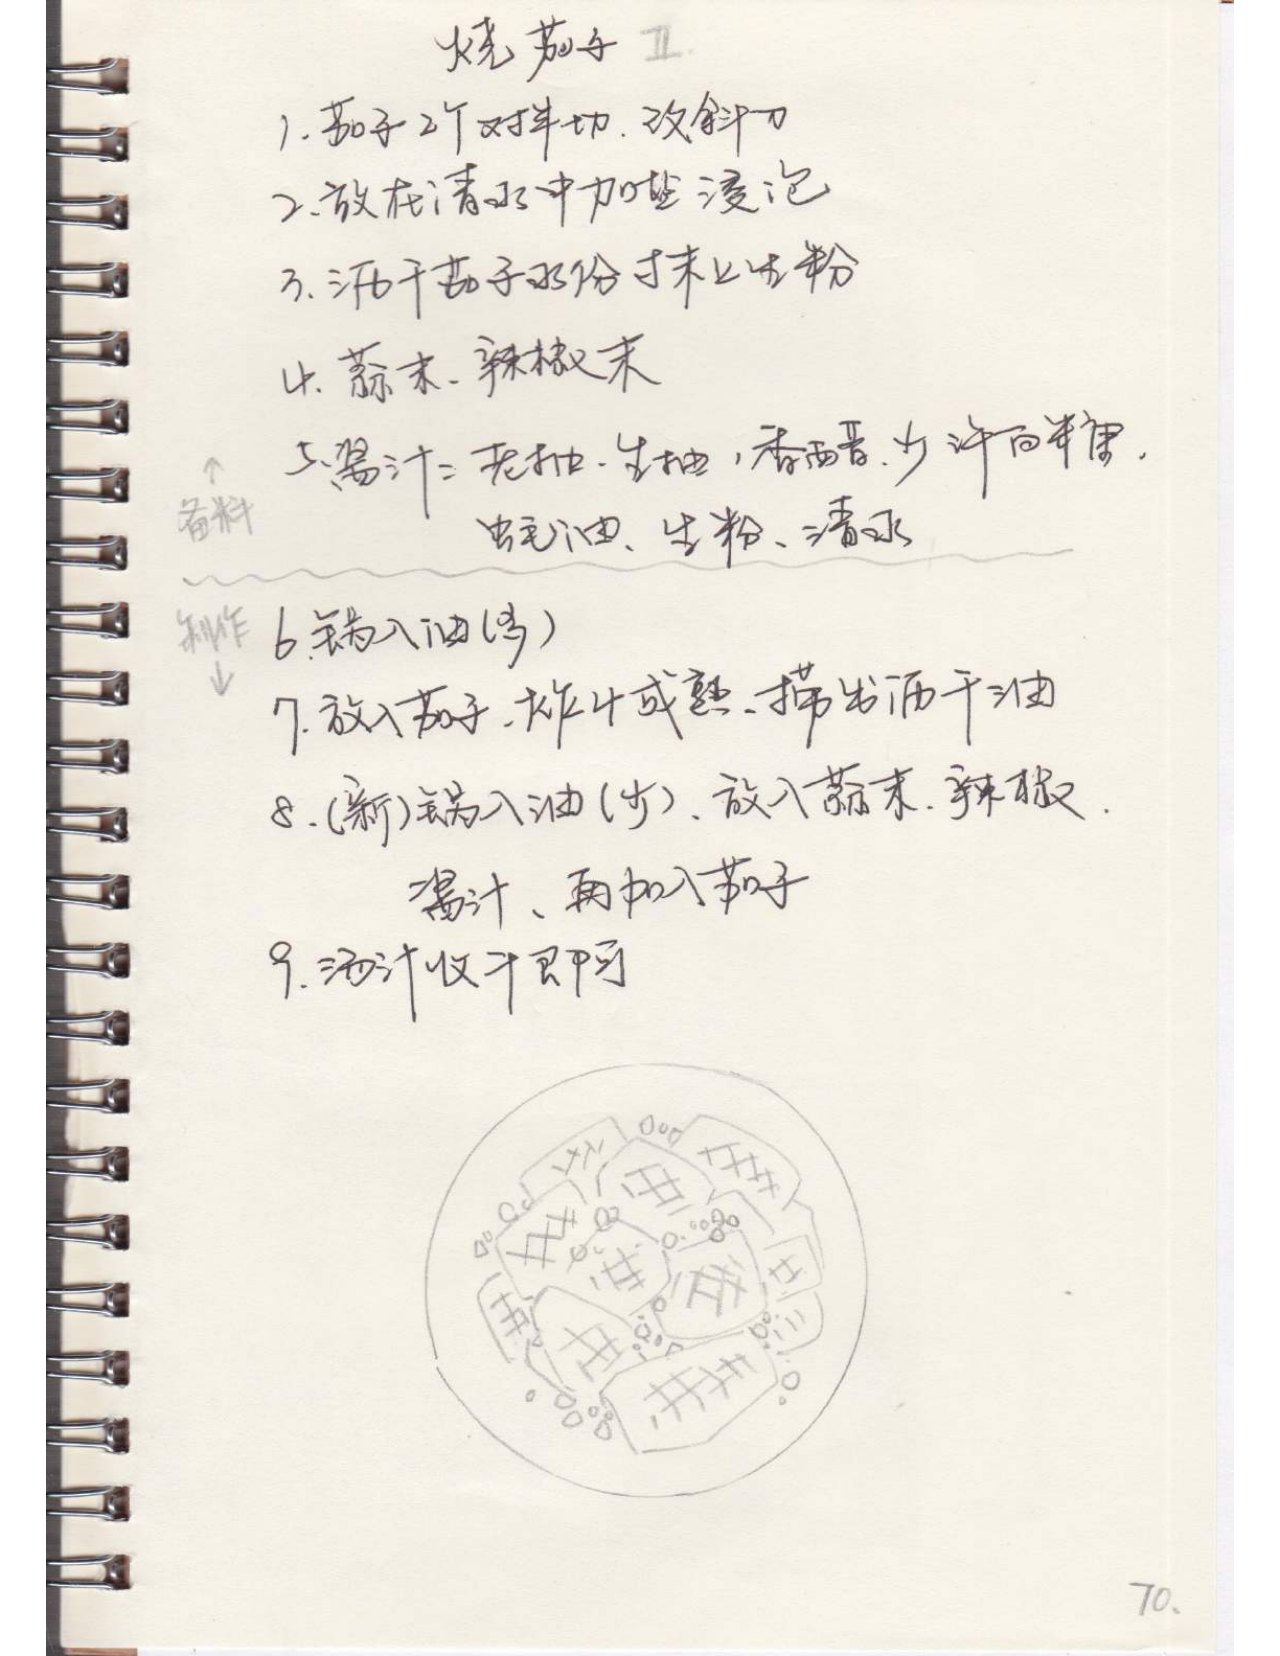 烧茄子 II.
1. 茄子2个对半切. 改斜刀
2. 放在清水中加盐浸泡
3. 沥干茄子水份才抹上生粉
4. 蒜末、辣椒末
5. 酱汁: 老抽、生抽,香醋、少许白糖.
↑
备料
蚝油、生粉、清水
制作
↓
6. 锅入油(多)
7. 放入茄子、炸4成熟、捞出沥干油
8. (新)锅入油(少)、放入蒜末、辣椒.
酱汁、再加入茄子
9. 汤汁收汁即可
70.